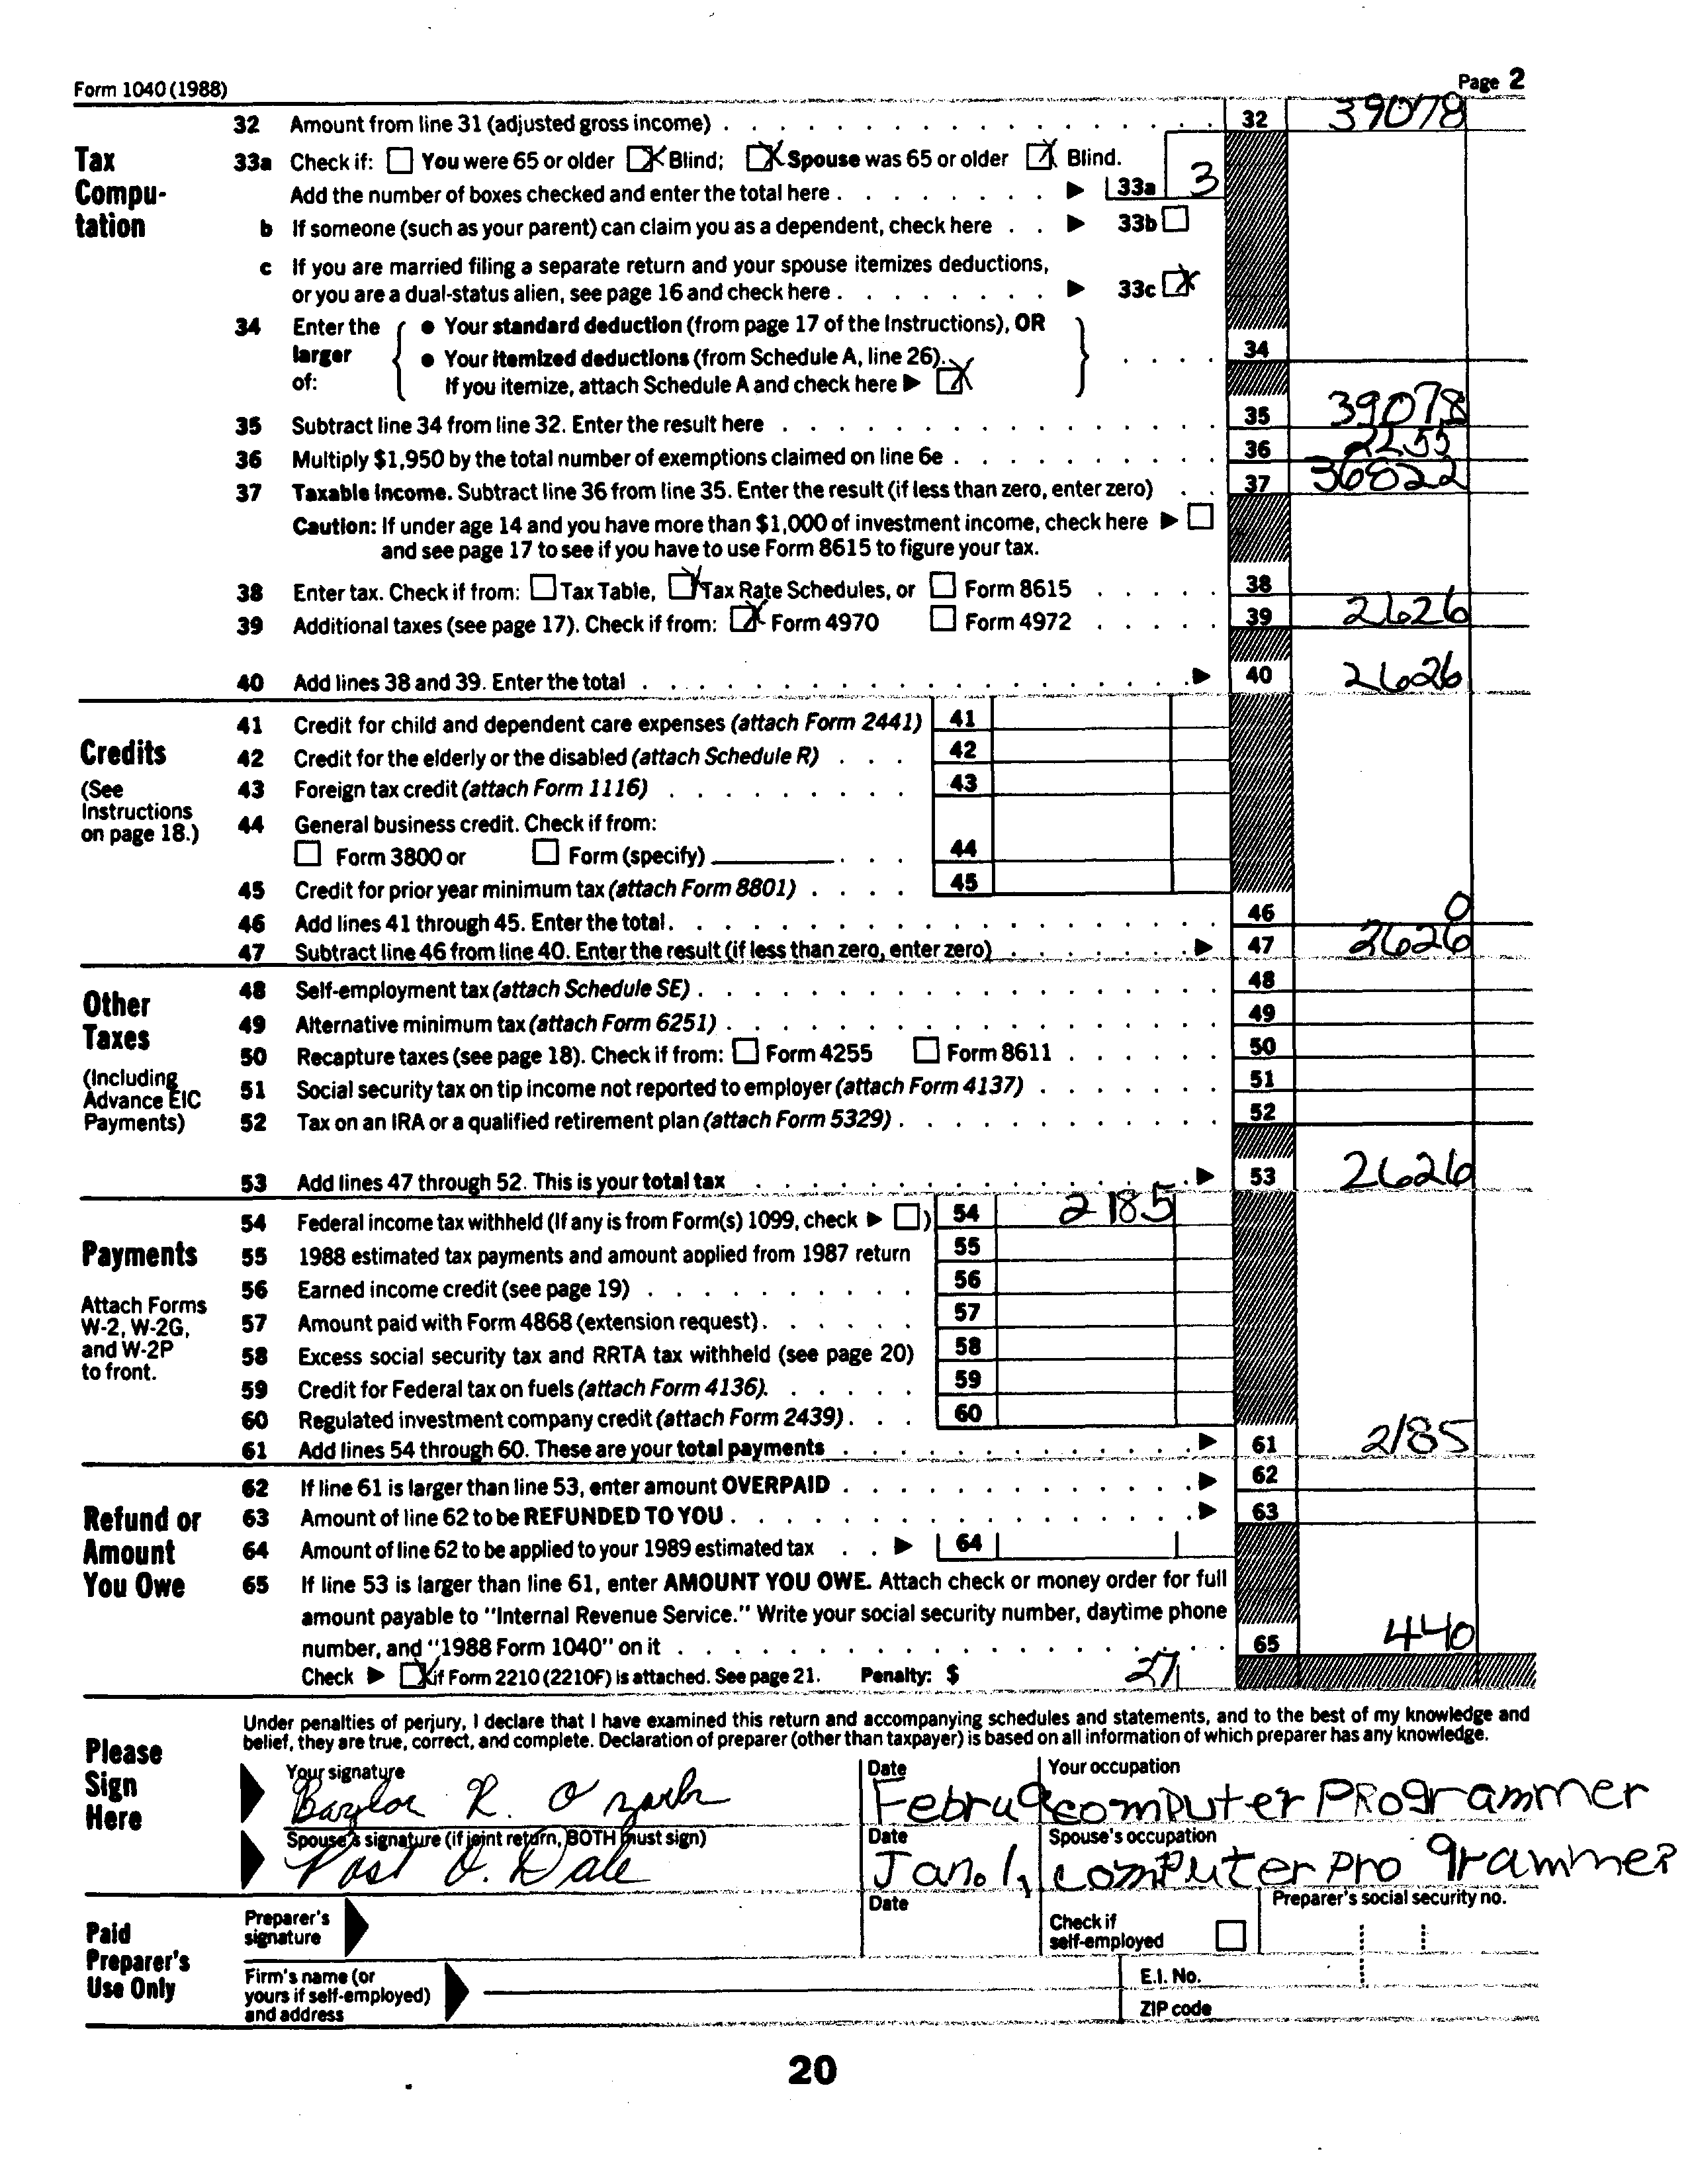 Form 1040 (1988) Page 2
32 Amount from line 31 (adjusted gross income) 32 39078
Tax Computation
33a Check if: You were 65 or older Blind; Spouse was 65 or older Blind.
Add the number of boxes checked and enter the total here 33a 3
b If someone (such as your parent) can claim you as a dependent, check here 33b
c If you are married filing a separate return and your spouse itemizes deductions,
or you are a dual-status alien, see page 16 and check here 33c
34 Enter the larger of:
• Your standard deduction (from page 17 of the Instructions), OR
• Your itemized deductions (from Schedule A, line 26).
If you itemize, attach Schedule A and check here
34
35 Subtract line 34 from line 32. Enter the result here 35 39078
36 Multiply $1,950 by the total number of exemptions claimed on line 6e 36 2255
37 Taxable income. Subtract line 36 from line 35. Enter the result (if less than zero, enter zero) 37 36822
Caution: If under age 14 and you have more than $1,000 of investment income, check here
and see page 17 to see if you have to use Form 8615 to figure your tax.
38 Enter tax. Check if from: Tax Table, Tax Rate Schedules, or Form 8615 38
39 Additional taxes (see page 17). Check if from: Form 4970 Form 4972 39 2626
40 Add lines 38 and 39. Enter the total 40 2626
Credits
(See Instructions on page 18.)
41 Credit for child and dependent care expenses (attach Form 2441) 41
42 Credit for the elderly or the disabled (attach Schedule R) 42
43 Foreign tax credit (attach Form 1116) 43
44 General business credit. Check if from:
Form 3800 or Form (specify) 44
45 Credit for prior year minimum tax (attach Form 8801) 45
46 Add lines 41 through 45. Enter the total 46 0
47 Subtract line 46 from line 40. Enter the result (if less than zero, enter zero) 47 2626
Other Taxes
(Including Advance EIC Payments)
48 Self-employment tax (attach Schedule SE) 48
49 Alternative minimum tax (attach Form 6251) 49
50 Recapture taxes (see page 18). Check if from: Form 4255 Form 8611 50
51 Social security tax on tip income not reported to employer (attach Form 4137) 51
52 Tax on an IRA or a qualified retirement plan (attach Form 5329) 52
53 Add lines 47 through 52. This is your total tax 53 2626
Payments
Attach Forms W-2, W-2G, and W-2P to front.
54 Federal income tax withheld (If any is from Form(s) 1099, check ) 54 2185
55 1988 estimated tax payments and amount applied from 1987 return 55
56 Earned income credit (see page 19) 56
57 Amount paid with Form 4868 (extension request) 57
58 Excess social security tax and RRTA tax withheld (see page 20) 58
59 Credit for Federal tax on fuels (attach Form 4136) 59
60 Regulated investment company credit (attach Form 2439) 60
61 Add lines 54 through 60. These are your total payments 61 2185
Refund or Amount You Owe
62 If line 61 is larger than line 53, enter amount OVERPAID 62
63 Amount of line 62 to be REFUNDED TO YOU 63
64 Amount of line 62 to be applied to your 1989 estimated tax 64
65 If line 53 is larger than line 61, enter AMOUNT YOU OWE. Attach check or money order for full
amount payable to "Internal Revenue Service." Write your social security number, daytime phone
number, and "1988 Form 1040" on it 65 440
Check if Form 2210 (2210F) is attached. See page 21. Penalty: $ 27
Please Sign Here
Under penalties of perjury, I declare that I have examined this return and accompanying schedules and statements, and to the best of my knowledge and
belief, they are true, correct, and complete. Declaration of preparer (other than taxpayer) is based on all information of which preparer has any knowledge.
Your signature Date Your occupation
Baylor R. Ozark Februa computer PROgrammer
Spouse's signature (if joint return, BOTH must sign) Date Spouse's occupation
Post O. Dale Jan. 1, computer pro grammer
Paid Preparer's Use Only
Preparer's signature Date Check if self-employed Preparer's social security no.
Firm's name (or yours if self-employed) and address E.I. No.
ZIP code
20